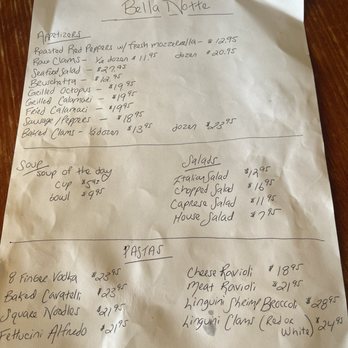 Bella Notte
Appetizers
Roasted Red Peppers w/ fresh mozzerella - $12.95
Raw Clams - 1/2 dozen $11.95 dozen $20.95
Seafood Salad - $27.95
Bruschetta - $12.95
Grilled Octopus - $19.95
Grilled Calamari - $19.95
Fried Calamari - $19.95
Sausage/Peppers - $18.95
Baked Clams - 1/2 dozen $13.95 dozen $23.95
Soup
soup of the day
cup $5.95
bowl $9.95
Salads
Italian Salad $12.95
Chopped Salad $16.95
Caprese Salad $11.95
House Salad $7.95
PASTAS
8 Finger Vodka $23.95
Baked Cavatelli $23.95
Square Noodles $21.95
Fettucini Alfredo $21.95
Cheese Ravioli $18.95
Meat Ravioli $21.95
Linguini Shrimp Broccoli $28.95
Linguini Clams (Red or White) $24.95